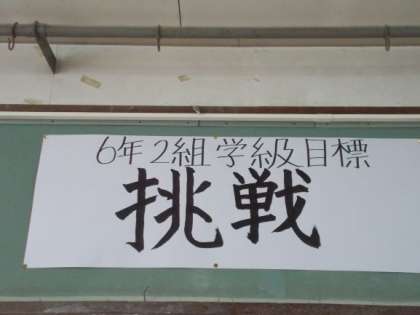 6年2組学級目標
挑戦